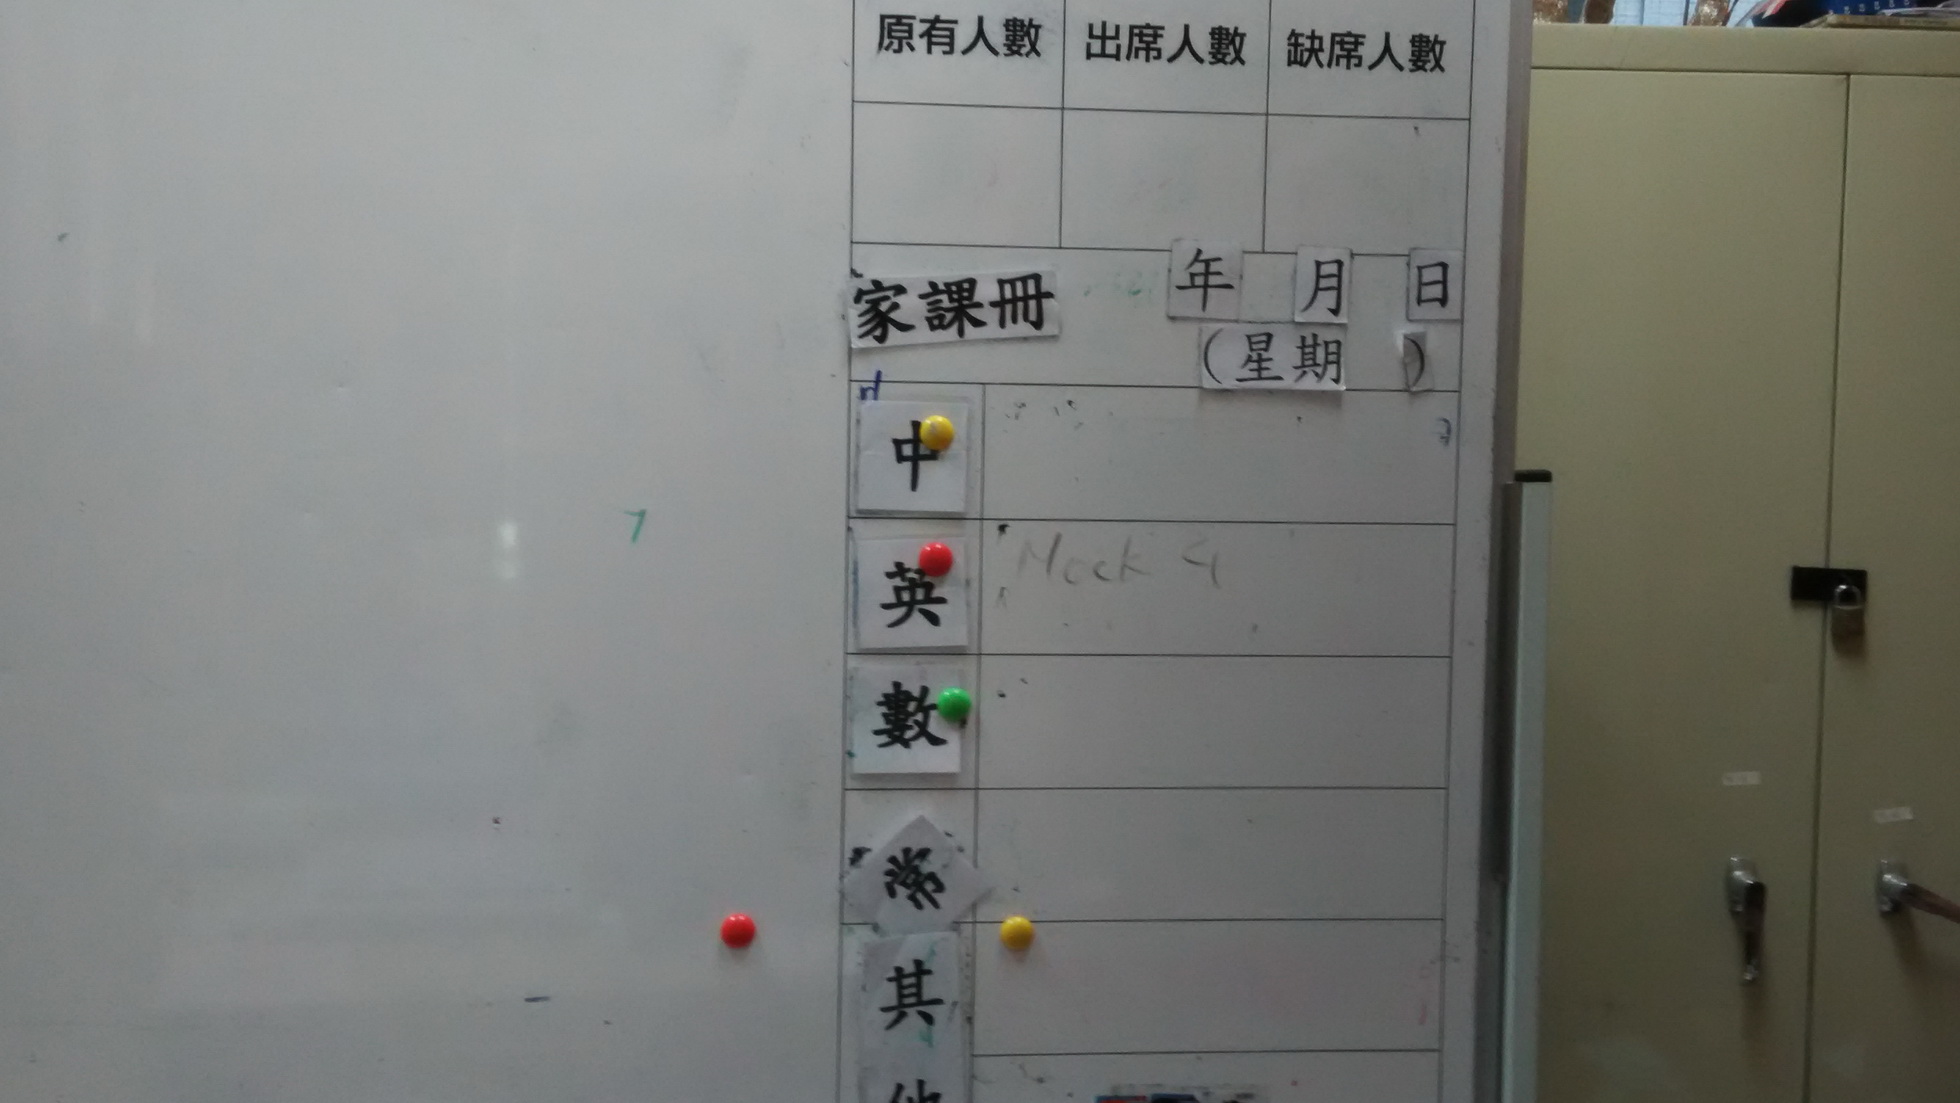 原有人數 出席人數 缺席人數
家課冊 年 月 日
(星期 )
中
英 Mock 4
數
常
其
他